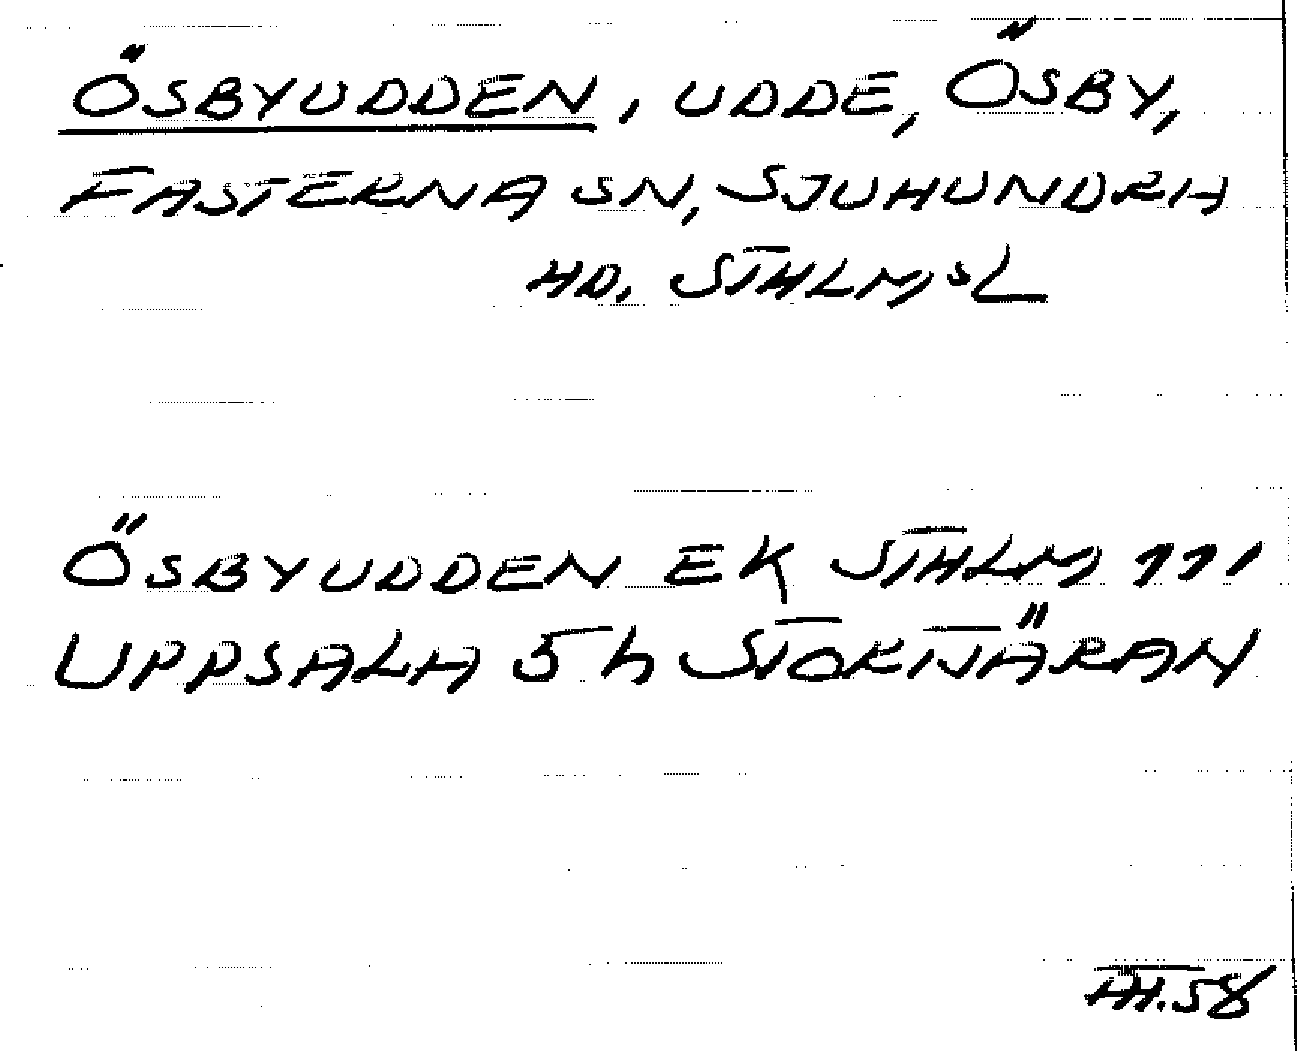 ÖSBYUDDEN, UDDE, ÖSBY,
FASTERNA SN, SJUHUNDRA
HD, STHLMSL
ÖSBYUDDEN EK STHLM 111
UPPSALA 5 h STORTJÄRAN